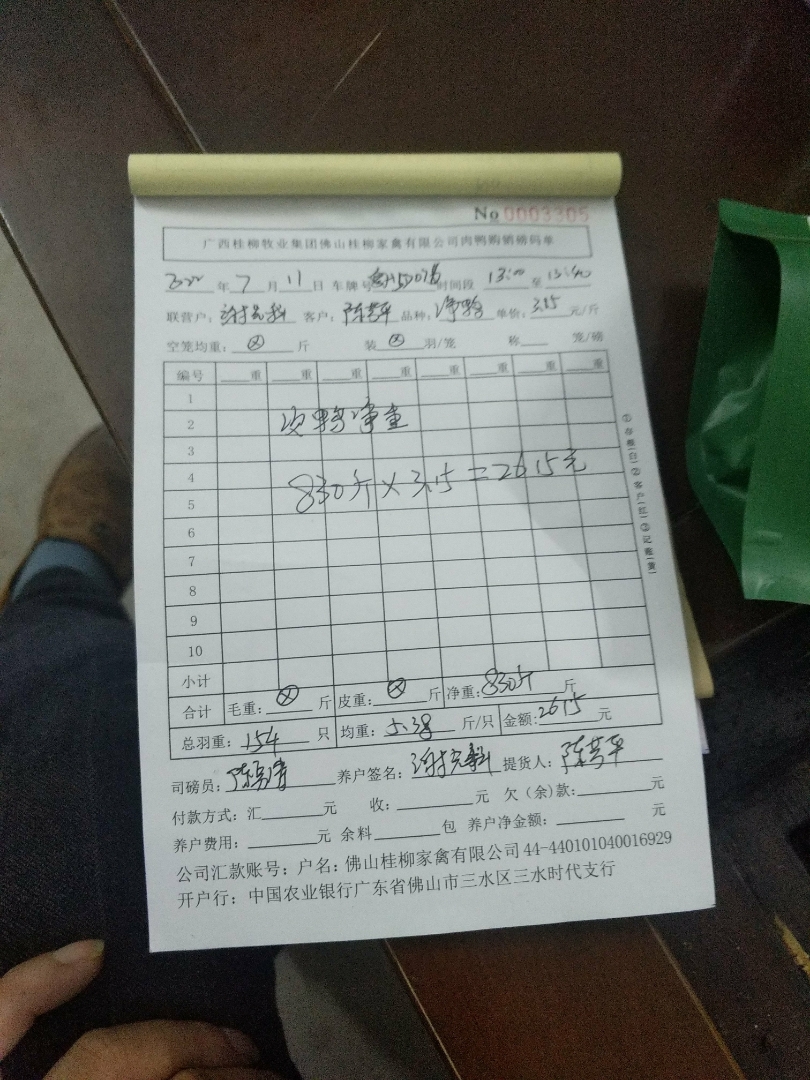 No 0003305
广西桂柳牧业集团佛山桂柳家禽有限公司肉鸭购销磅码单
2022年7月11日 车牌号 时间段 13:00至13:40
联营户: 客户:陈苦平 品种: 单价:3.15元/斤
空笼均重:⊗斤 装⊗羽/笼 称 笼/磅
编号 重 重 重 重 重 重 重 重
1
2 次鸭净重
3
4 830斤×3.15=2615元
5
6
7
8
9
10
小计
合计 毛重:⊗斤 皮重:⊗斤 净重:830斤斤
总羽重:154只 均重:5.38斤/只 金额:2615元
司磅员: 养户签名: 提货人:
付款方式:汇 元 收: 元 欠(余)款: 元
养户费用: 元 余料 包 养户净金额: 元
公司汇款账号:户名:佛山桂柳家禽有限公司44-440101040016929
开户行:中国农业银行广东省佛山市三水区三水时代支行
①存根(白)②客户(红)③记账(黄)